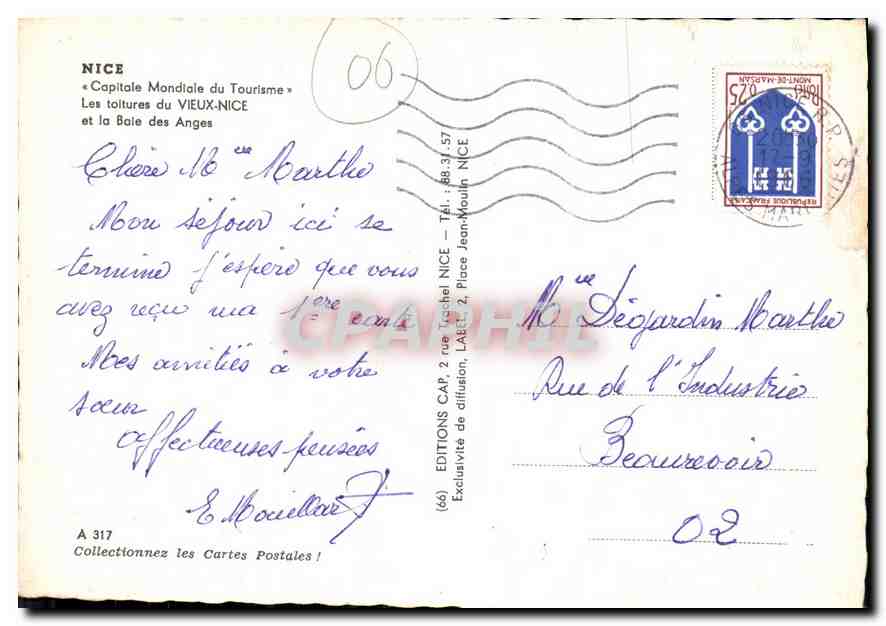 NICE
« Capitale Mondiale du Tourisme »
Les toitures du VIEUX-NICE
et la Baie des Anges
06
Chère Melle Marthe
Mon séjour ici se
termine j'espère que vous
avez reçu ma 1ère carte
Mes amitiés à votre
sœur
affectueuses pensées
E Mouillard
A 317
Collectionnez les Cartes Postales !
(66) EDITIONS CAP, 2 rue Trachel NICE — Tél. : 88.31.57
Exclusivité de diffusion, LABEL, 2, Place Jean-Moulin NICE
MONT-DE-MARSAN
0,25
POSTES
REPUBLIQUE FRANÇAISE
NICE R.P.
17-9
Melle Dégardin Marthe
Rue de l'Industrie
Beaurevoir
02
CPARHIL